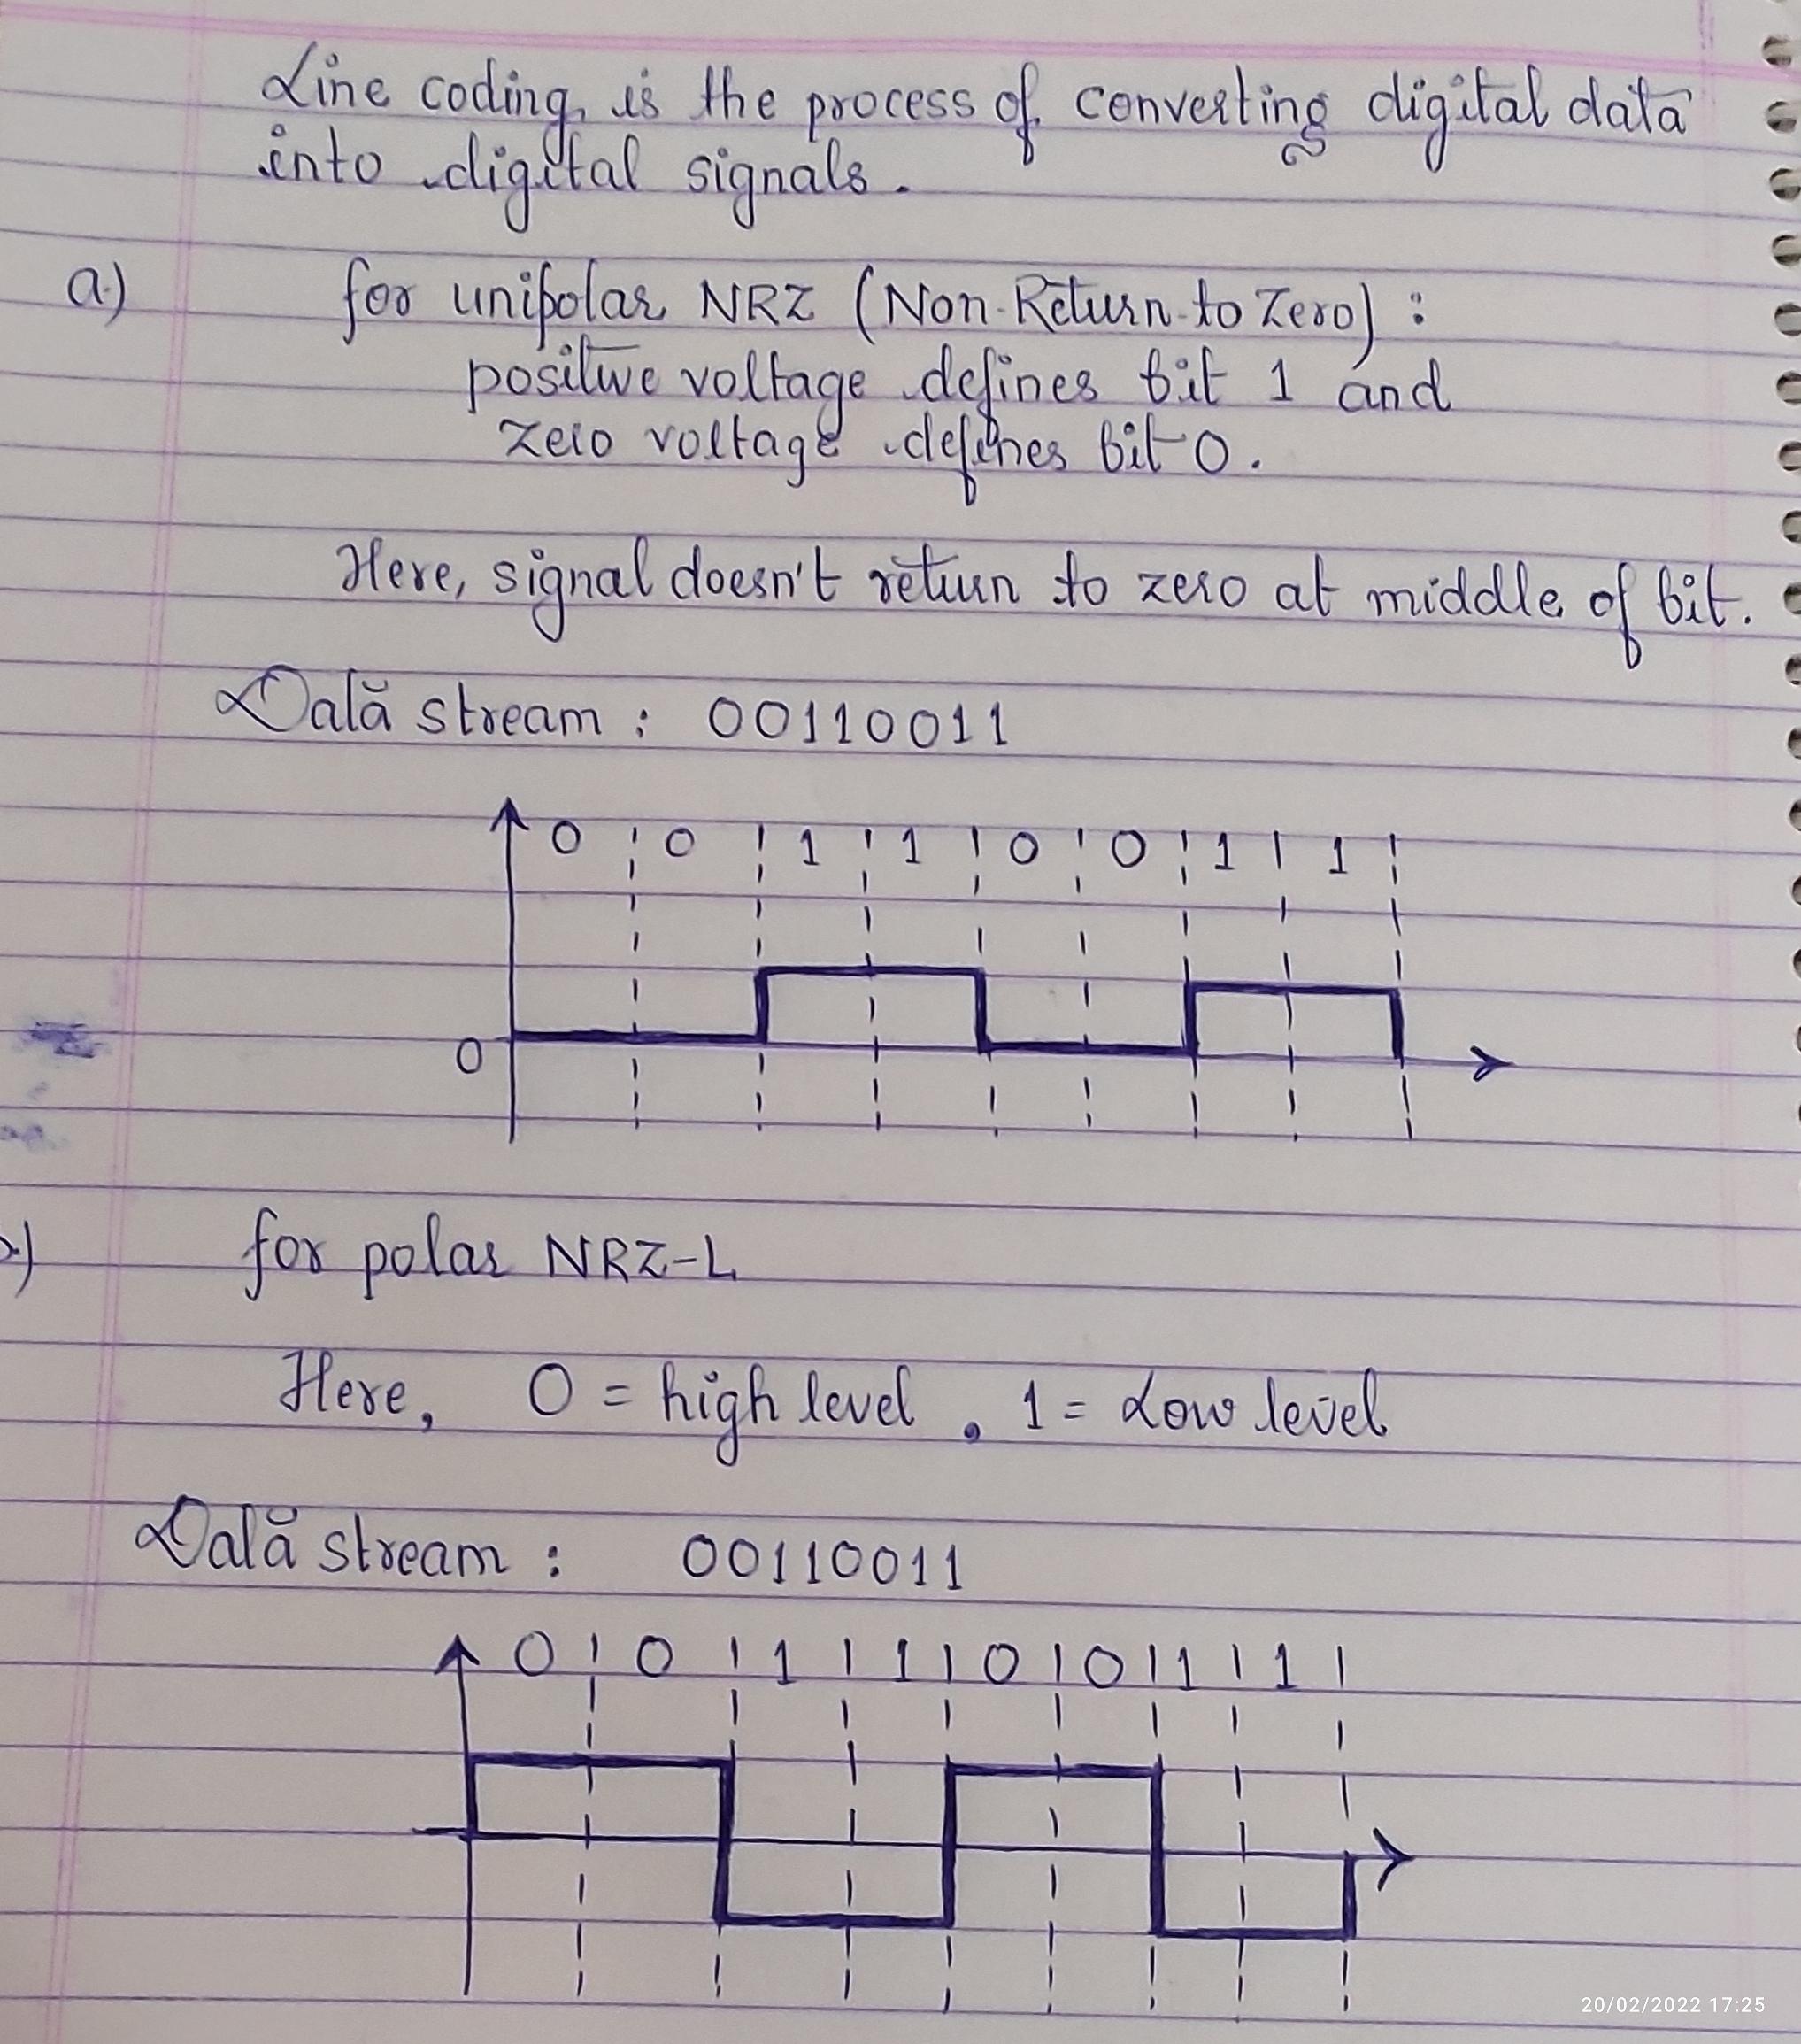 Line coding is the process of converting digital data
into digital signals.
a) for unipolar NRZ (Non-Return-to Zero) :
positive voltage defines bit 1 and
zero voltage defines bit 0.
Here, signal doesn't return to zero at middle of bit.
Data stream : 00110011
0 0 1 1 0 0 1 1
0
for polar NRZ-L
Here, 0 = high level , 1 = Low level
Data stream : 00110011
0 0 1 1 0 0 1 1
20/02/2022 17:25